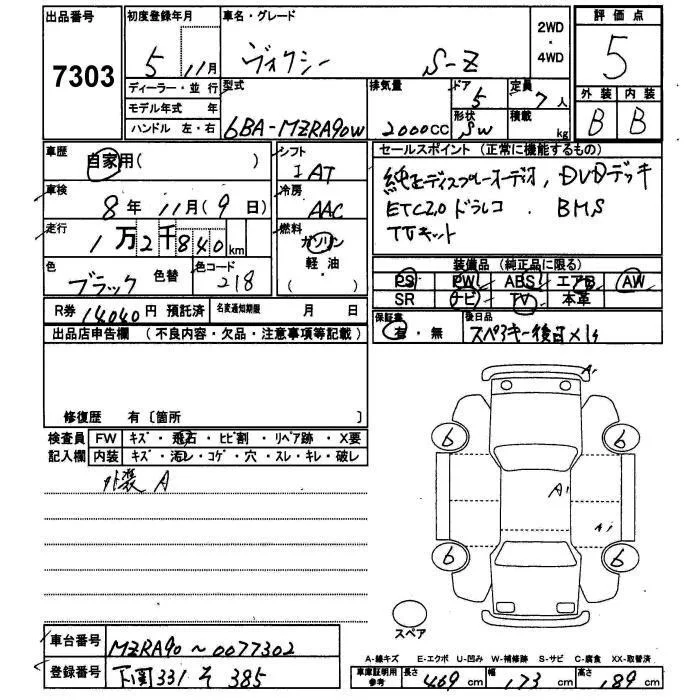 出品番号
7303
初度登録年月
5 11月
ディーラー・並行
モデル年式 年
ハンドル 左・右
車名・グレード
ヴォクシー S-Z
2WD
・
4WD
型式
6BA-MZRA90W
排気量
2000CC
ドア
5
形状
SW
定員
7人
積載
kg
評価点
5
外装 内装
B B
車歴
自家用( )
車検
8年 11月(9日)
走行
1万2千840km
色
ブラック 色替
色コード
218
シフト
I AT
冷房
AAC
燃料
ガソリン
軽・油
( )
セールスポイント (正常に機能するもの)
純正ディスプレーオーディオ, DVDデッキ
ETC2.0 ドラレコ . BMS
TVキット
装備品 (純正品に限る)
PS PW ABS エアB AW
SR ナビ TV 本革
R券 14040円 預託済
名変通知期限 月 日
保証書
有・無
後日品
スペアキー後日×1ヶ
出品店申告欄 (不良内容・欠品・注意事項等記載)
修復歴 有〔箇所 〕
検査員
記入欄
FW キズ・飛石・ヒビ割・リペア跡・X要
内装 キズ・汚レ・コゲ・穴・スレ・キレ・破レ
外装 A
A1
6 6
A1
A1
6 6
スペア
車台番号
MZRA90~0077302
登録番号
下関 331 そ 385
A-線キズ E-エクボ U-凹み W-補修跡 S-サビ C-腐食 XX-取替済
車庫証明用
参考
長さ 469cm 幅 173cm 高さ 189cm